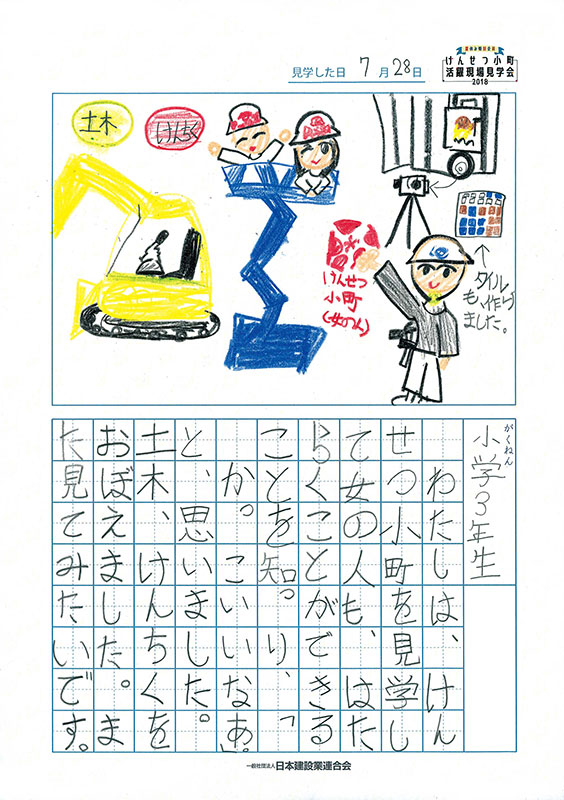 夏休み特別企画
けんせつ小町
活躍現場見学会
2018
見学した日 7月28日
土木
けんちく
けんせつ
小町
(女の人)
タイル
も、作り
ました。
がくねん
小学3年生
わたしは、けん
せつ小町を見学し
て女の人も、はた
らくことができる
ことを知っり、「
かっこいいなあ」
と、思いました。
土木、けんちくを
おぼえました。ま
た見てみたいです。
一般社団法人 日本建設業連合会